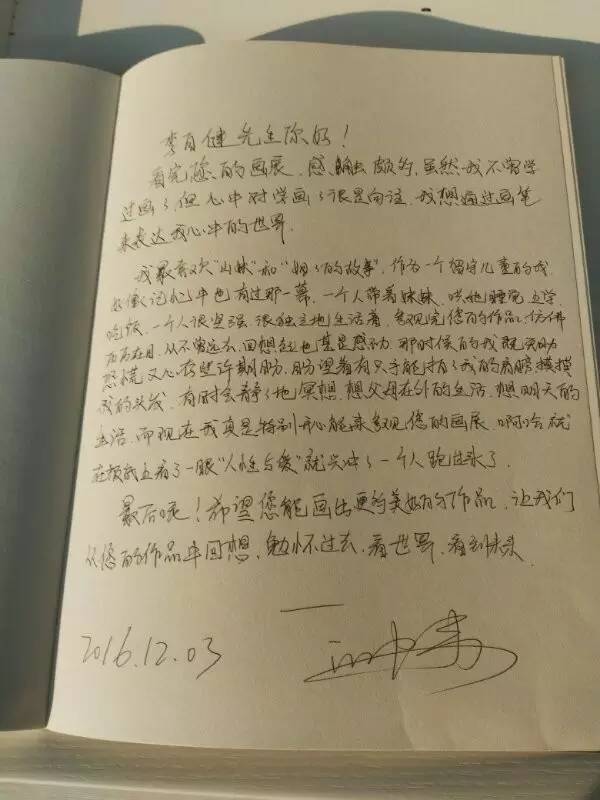 李自健先生你好！
看完您的画展，感触颇多，虽然我不曾学
过画了，但心中对学画了很是向往，我想通过画笔
来表达我心中的世界。
我最喜欢"山妹"和"姐了的故事"，作为一个留守儿童的我，
好像记忆中也有过那一幕，一个人带着妹妹，哄她睡觉、上学、
吃饭，一个人很坚强，很独立地生活着，参观完您的作品，仿佛
历历在目，从不曾远去，回想起也甚是感动，那时候的我既无助
恐慌又心存些许期盼，盼望着有只手能拍了我的肩膀，摸摸
我的头发，有时会静了地冥想，想父母在外的生活，想明天的
生活，而现在我真是特别开心能来参观您的画展，啊哈就
在横幅上看了一眼"人性与爱"就兴冲了一个人跑进来了。
最后呢！希望您能画出更多的美好的作品，让我们
从您的作品中回想，勉怀过去，看世界，看到未来。
2016.12.03